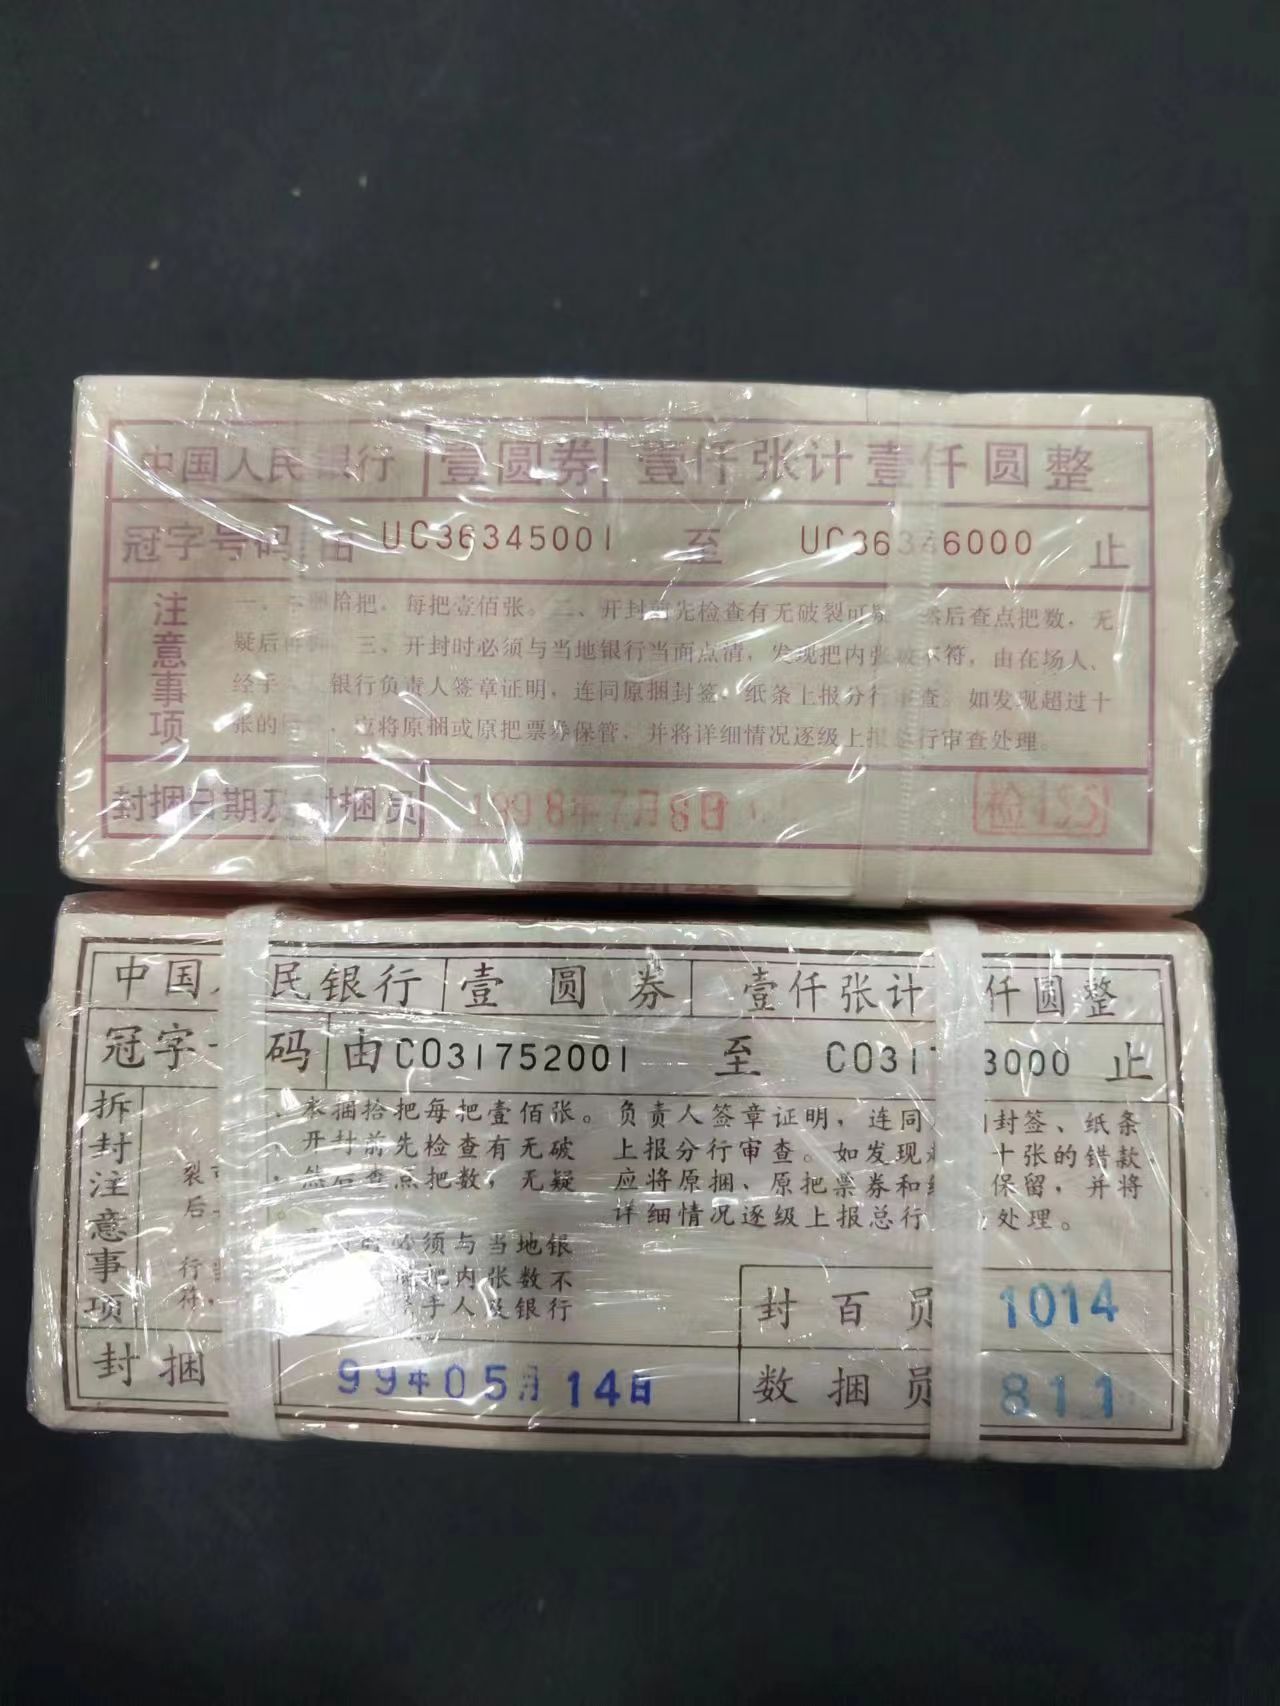 中国人民银行 壹圆券 壹仟张计壹仟圆整
冠字号码 由 UC36345001 至 UC36346000 止
注意事项
一、本捆拾把，每把壹佰张。二、开封前先检查有无破裂可疑，然后查点把数，无
疑后再 三、开封时必须与当地银行当面点清，发现把内张数不符，由在场人、
经手 银行负责人签章证明，连同原捆封签、纸条上报分行审查。如发现超过十
张的 应将原捆或原把票券保管，并将详细情况逐级上报总行审查处理。
封捆日期及封捆员 1998年7月8日 检155
中国 民银行 壹圆券 壹仟张计 仟圆整
冠字 码 由 CO31752001 至 CO317 3000 止
拆封注意事项
本捆拾把每把壹佰张。
开封前先检查有无破
裂 然后查点把数，无疑
后
必须与当地银
行 把内张数不
符， 手人及银行
负责人签章证明，连同 封签、纸条
上报分行审查。如发现 十张的错款，
应将原捆、原把票券和 保留，并将
详细情况逐级上报总行 处理。
封百员 1014
封捆 99年05月14日 数捆员 811